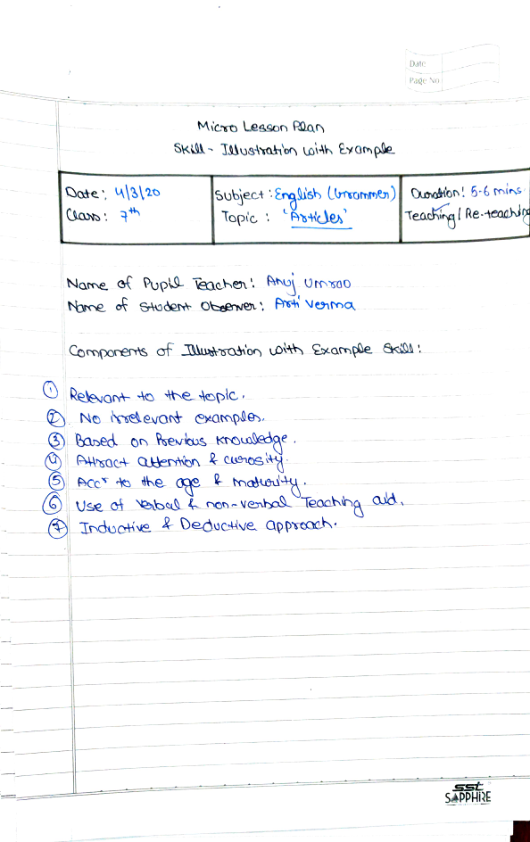 Date
Page No
Micro Lesson Plan
Skill - Illustration with Example
Date: 4/3/20 Subject: English (Grammer) Duration: 5-6 mins
Class: 7th Topic: 'Articles' Teaching / Re-teaching
Name of Pupil Teacher: Anuj Umrao
Name of Student Observer: Arti Verma
Components of Illustration with Example Skill:
① Relevant to the topic.
② No irrelevant examples.
③ Based on Previous knowledge.
④ Attract attention & curosity.
⑤ Accr to the age & maturity.
⑥ Use of verbal & non-verbal Teaching aid.
⑦ Inductive & Deductive approach.
SST
SAPPHIRE